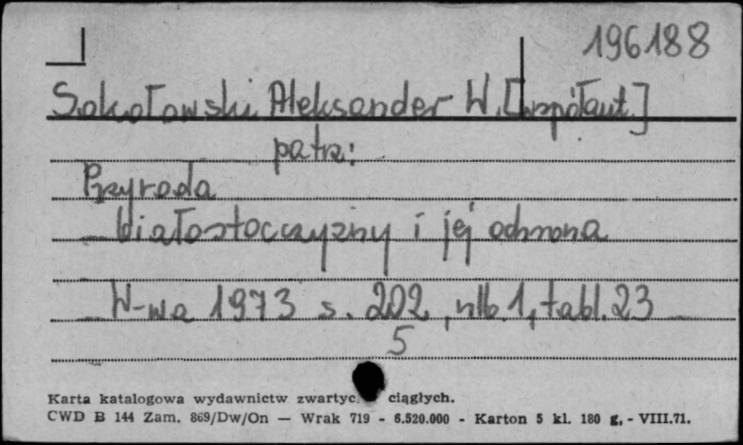 196188
Sokołowski Aleksander W. [współaut.]
patrz:
Przyroda
białostocczyzny i jej ochrona
W-wa 1973 s. 202, nlb. 1, tabl. 23
5
Karta katalogowa wydawnictw zwartyc ciągłych.
CWD B 144 Zam. 869/Dw/On — Wrak 719 - 6.520.000 - Karton 5 kl. 180 g. - VIII.71.